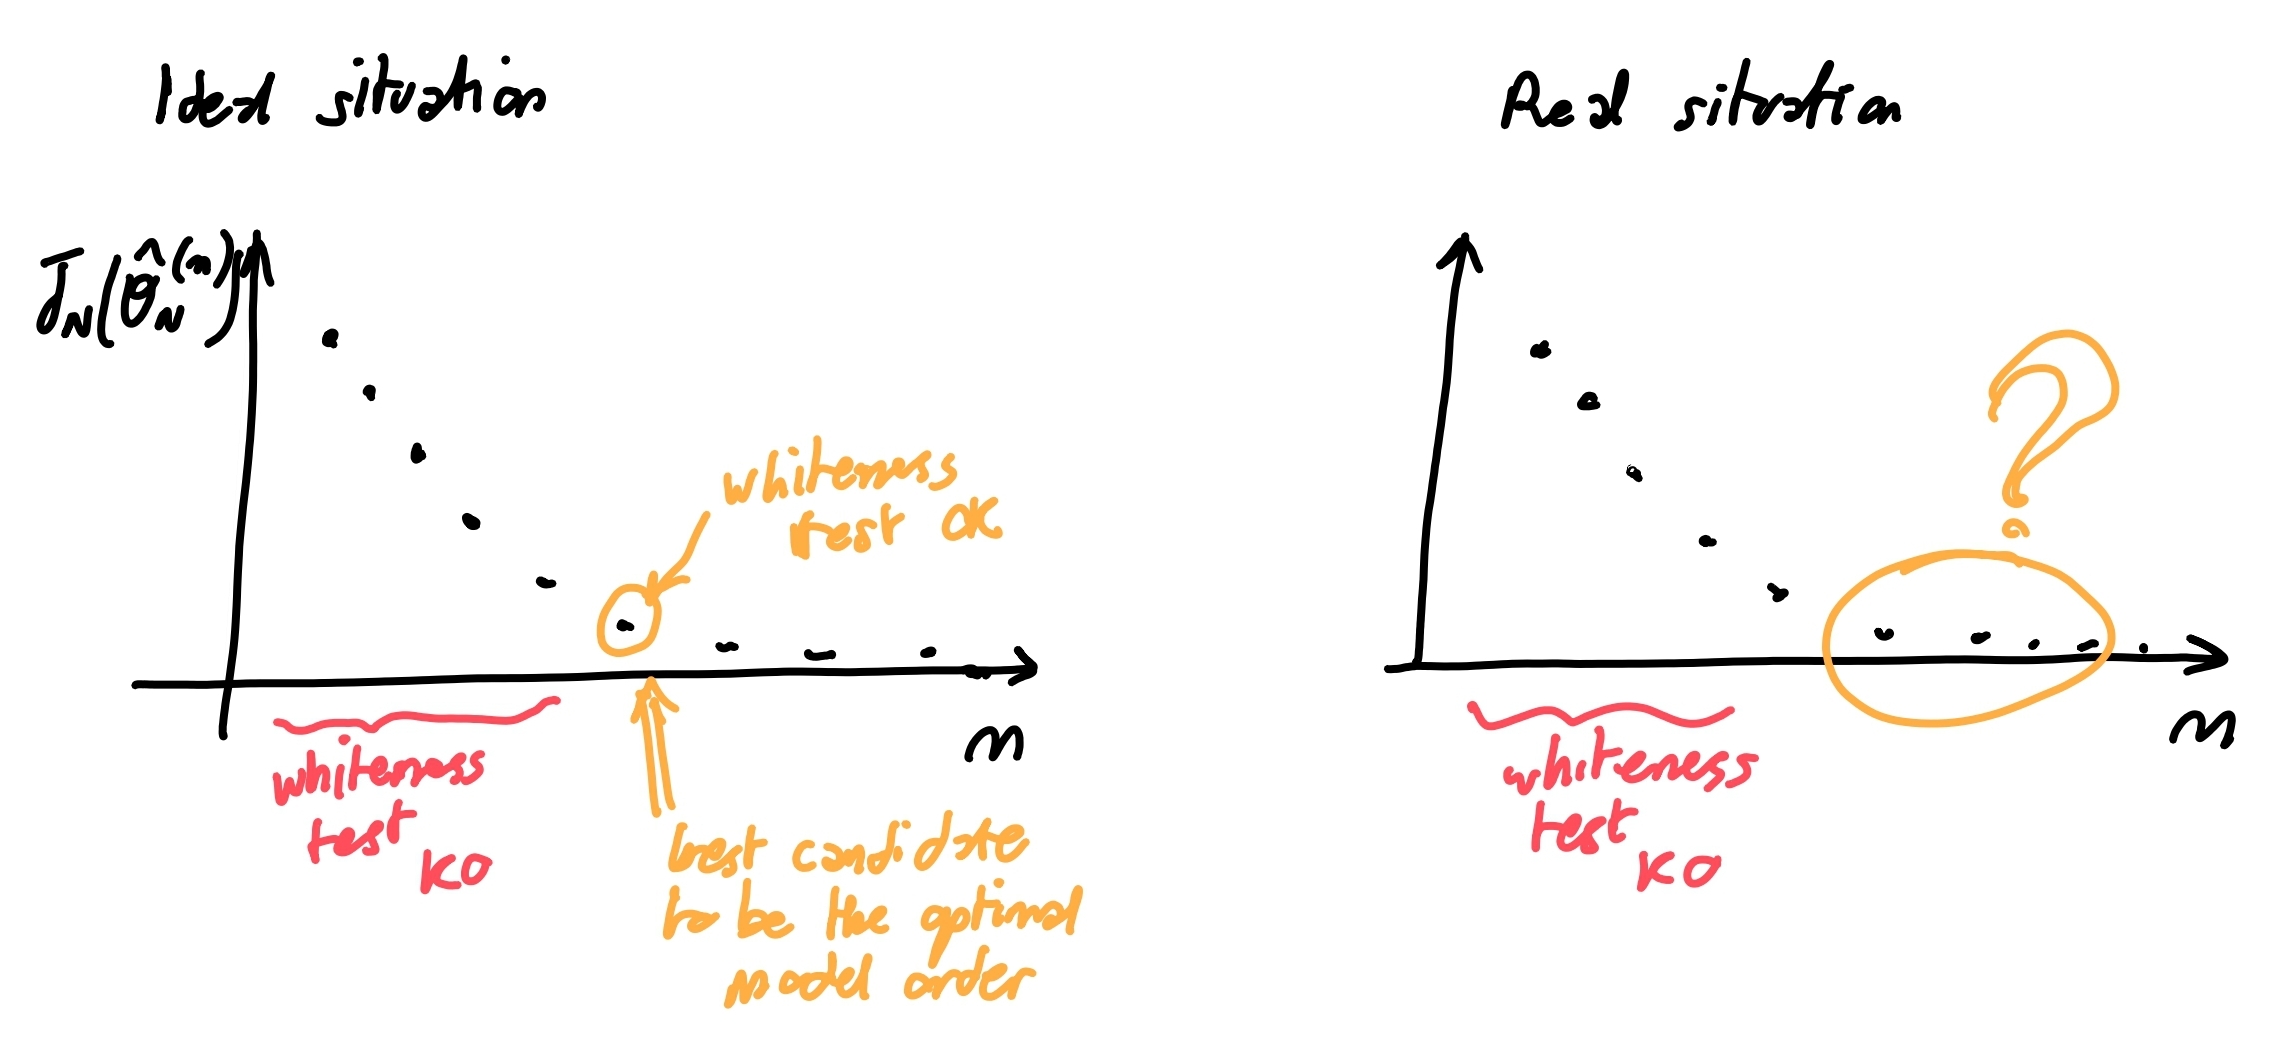 Ideal situation
J̄_N(θ̂_N^(n))
whiteness
test OK
n
whiteness
test
KO
best candidate
to be the optimal
model order
Real situation
?
n
whiteness
test
KO